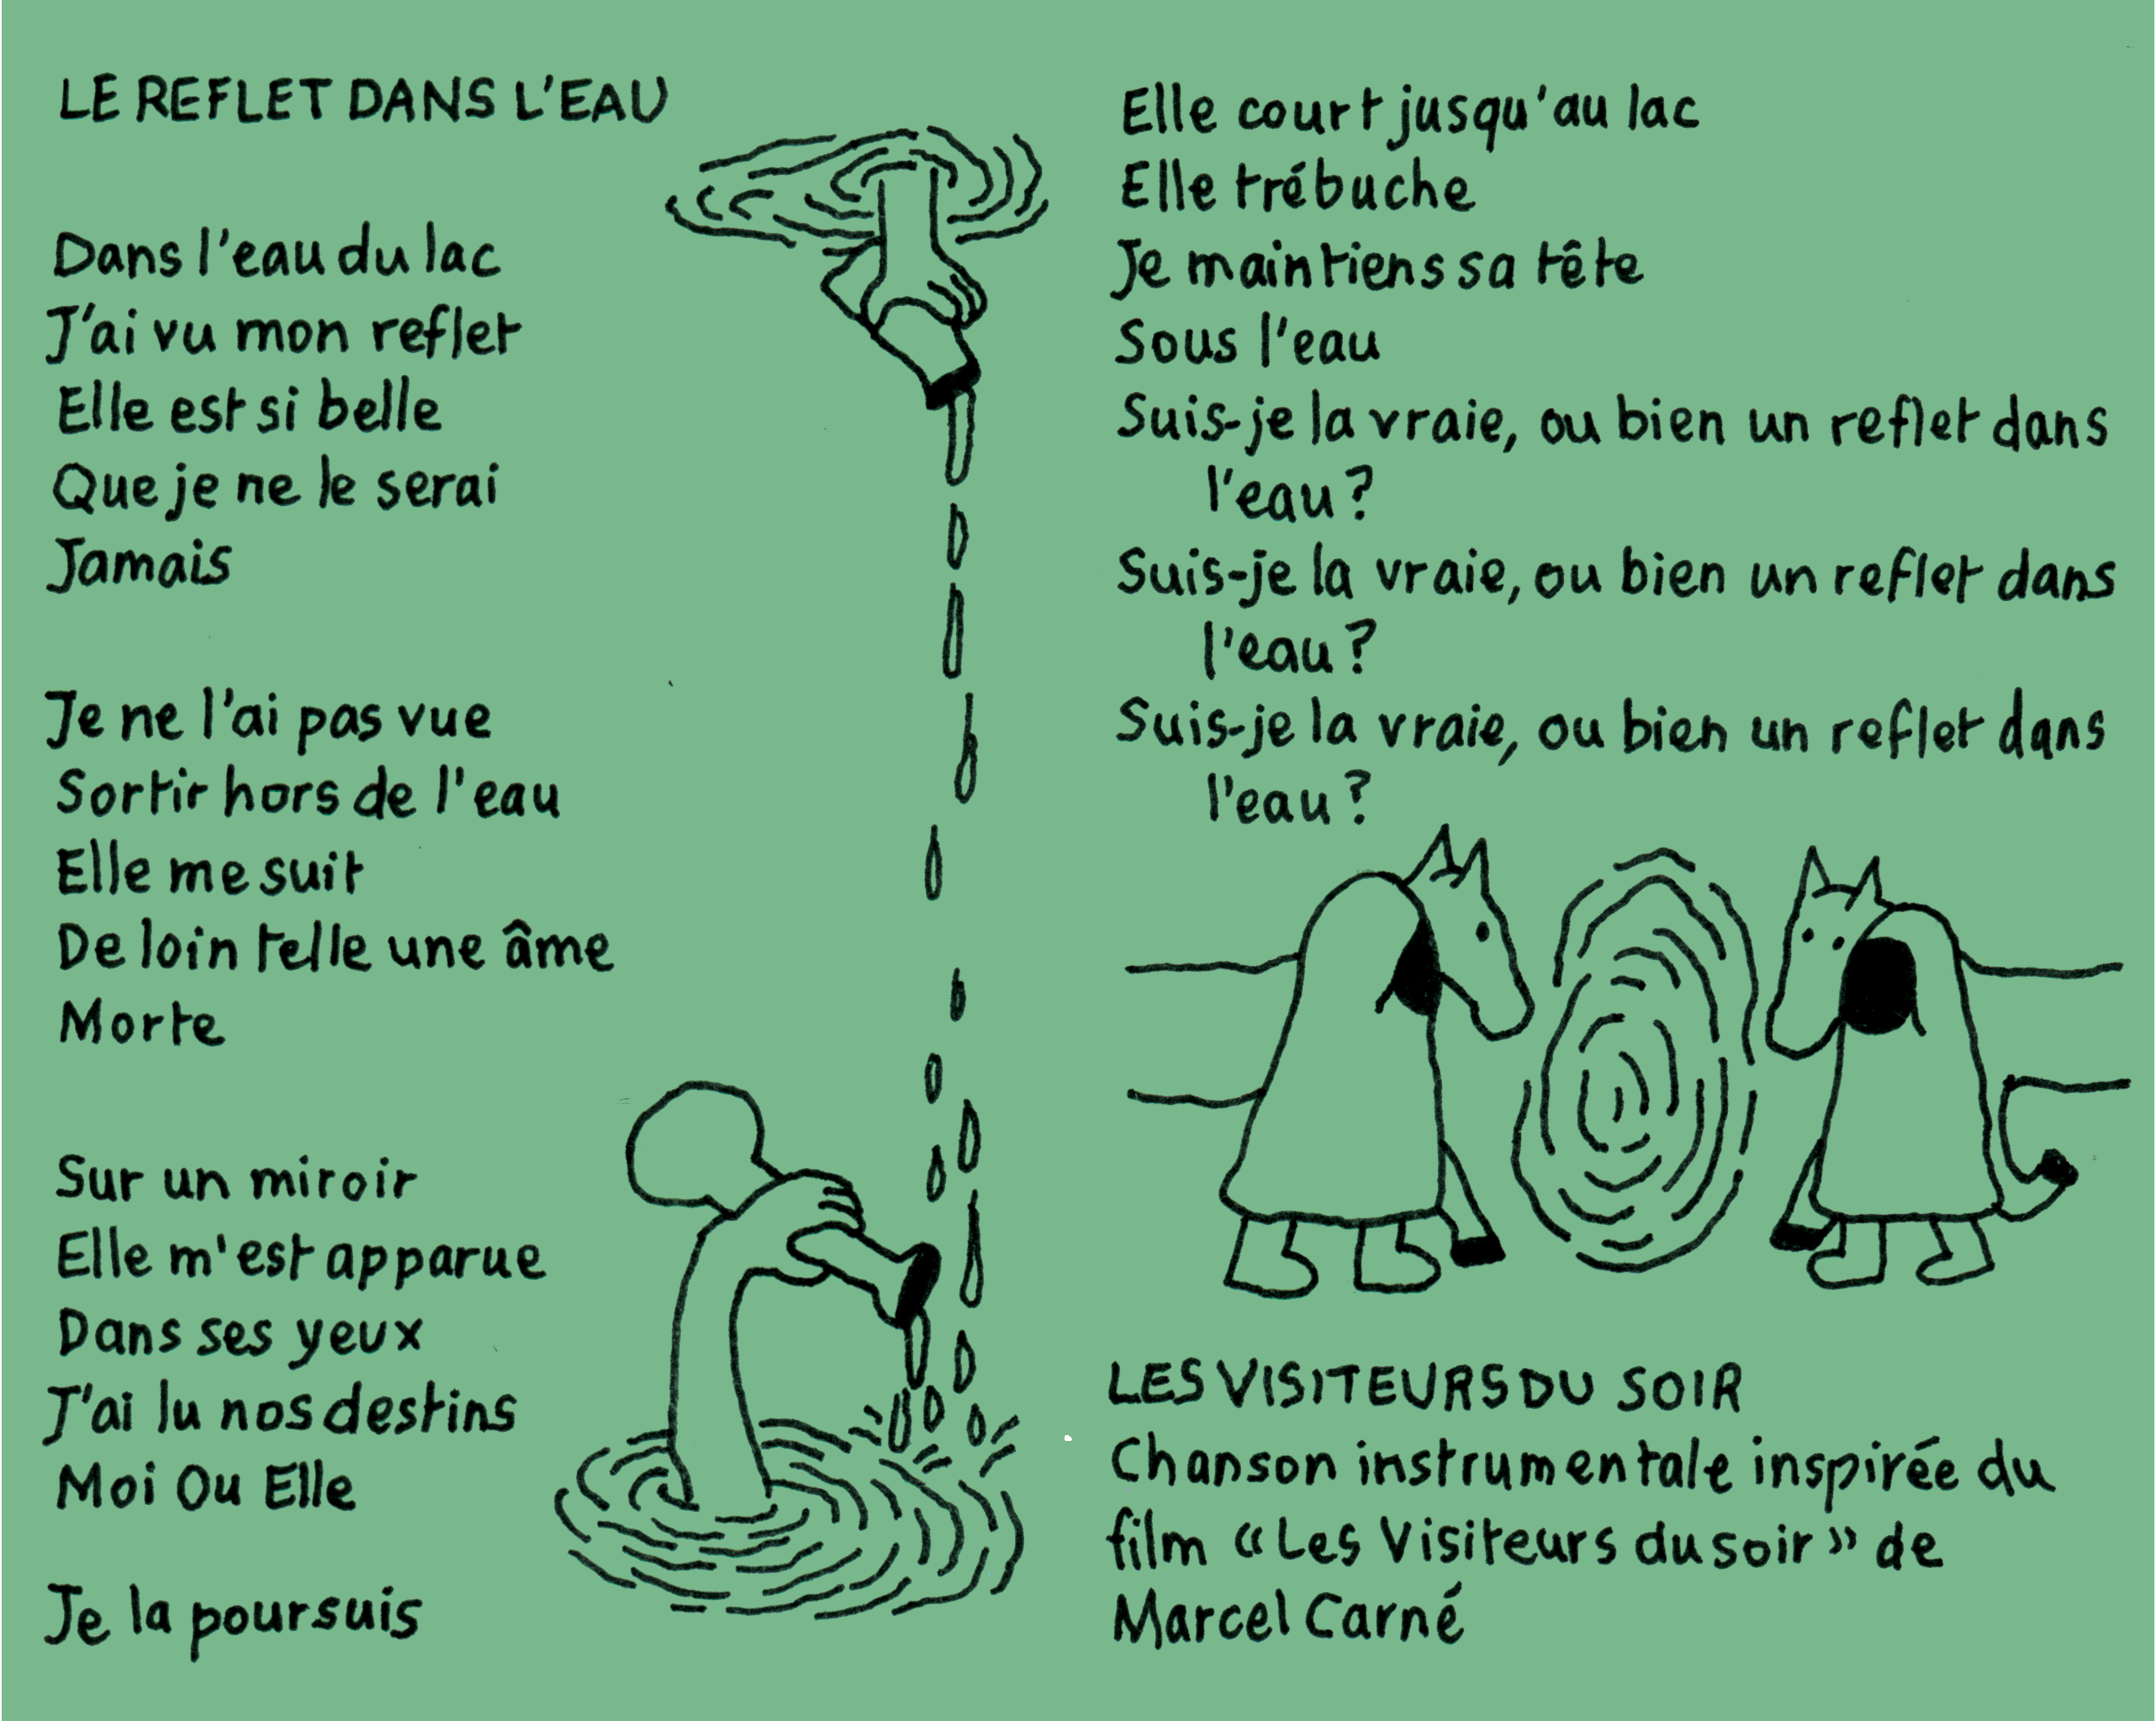 LE REFLET DANS L'EAU
Dans l'eau du lac
J'ai vu mon reflet
Elle est si belle
Que je ne le serai
Jamais
Je ne l'ai pas vue
Sortir hors de l'eau
Elle me suit
De loin telle une âme
Morte
Sur un miroir
Elle m'est apparue
Dans ses yeux
J'ai lu nos destins
Moi Ou Elle
Je la poursuis
Elle court jusqu'au lac
Elle trébuche
Je maintiens sa tête
Sous l'eau
Suis-je la vraie, ou bien un reflet dans
l'eau ?
Suis-je la vraie, ou bien un reflet dans
l'eau ?
Suis-je la vraie, ou bien un reflet dans
l'eau ?
LES VISITEURS DU SOIR
Chanson instrumentale inspirée du
film « Les Visiteurs du soir » de
Marcel Carné